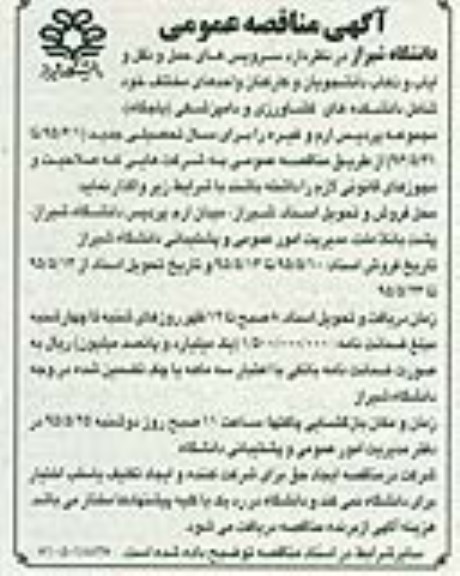 آگهی مناقصه عمومی
دانشگاه شیراز
دانشگاه شیراز در نظر دارد سرویس های حمل و نقل و
ایاب و ذهاب دانشجویان و کارکنان واحدهای مختلف خود
شامل دانشکده های کشاورزی و دامپزشکی (باجگاه)
مجموعه پردیس ارم و غیره را برای سال تحصیلی جدید
از طریق مناقصه عمومی به شرکت هایی که صلاحیت و
مجوزهای قانونی لازم را داشته باشند با شرایط زیر واگذار نماید
محل فروش و تحویل اسناد: شیراز، میدان ارم پردیس دانشگاه شیراز،
پشت بانک ملت مدیریت امور عمومی و پشتیبانی دانشگاه شیراز
تاریخ فروش اسناد: ۹۵/۵/۱۰ تا ۹۵/۵/۱۳ و تاریخ تحویل اسناد از ۹۵/۵/۱۳
تا ۹۵/۵/۲۳
زمان دریافت و تحویل اسناد: ۸ صبح تا ۱۲ ظهر روزهای شنبه تا چهارشنبه
مبلغ ضمانت نامه: ۱/۵۰۰/۰۰۰/۰۰۰ (یک میلیارد و پانصد میلیون) ریال به
صورت ضمانت نامه بانکی با اعتبار سه ماهه یا چک تضمین شده در وجه
دانشگاه شیراز
زمان و مکان بازگشایی پاکتها: ساعت ۱۱ صبح روز دوشنبه ۹۵/۵/۲۵ در
دفتر مدیریت امور عمومی و پشتیبانی دانشگاه
شرکت در مناقصه ایجاد حق برای شرکت کننده و ایجاد تکلیف یا سلب اختیار
برای دانشگاه نمی کند و دانشگاه در رد یک یا کلیه پیشنهادها مختار می باشد.
هزینه آگهی از برنده مناقصه دریافت می شود.
سایر شرایط در اسناد مناقصه توضیح داده شده است.